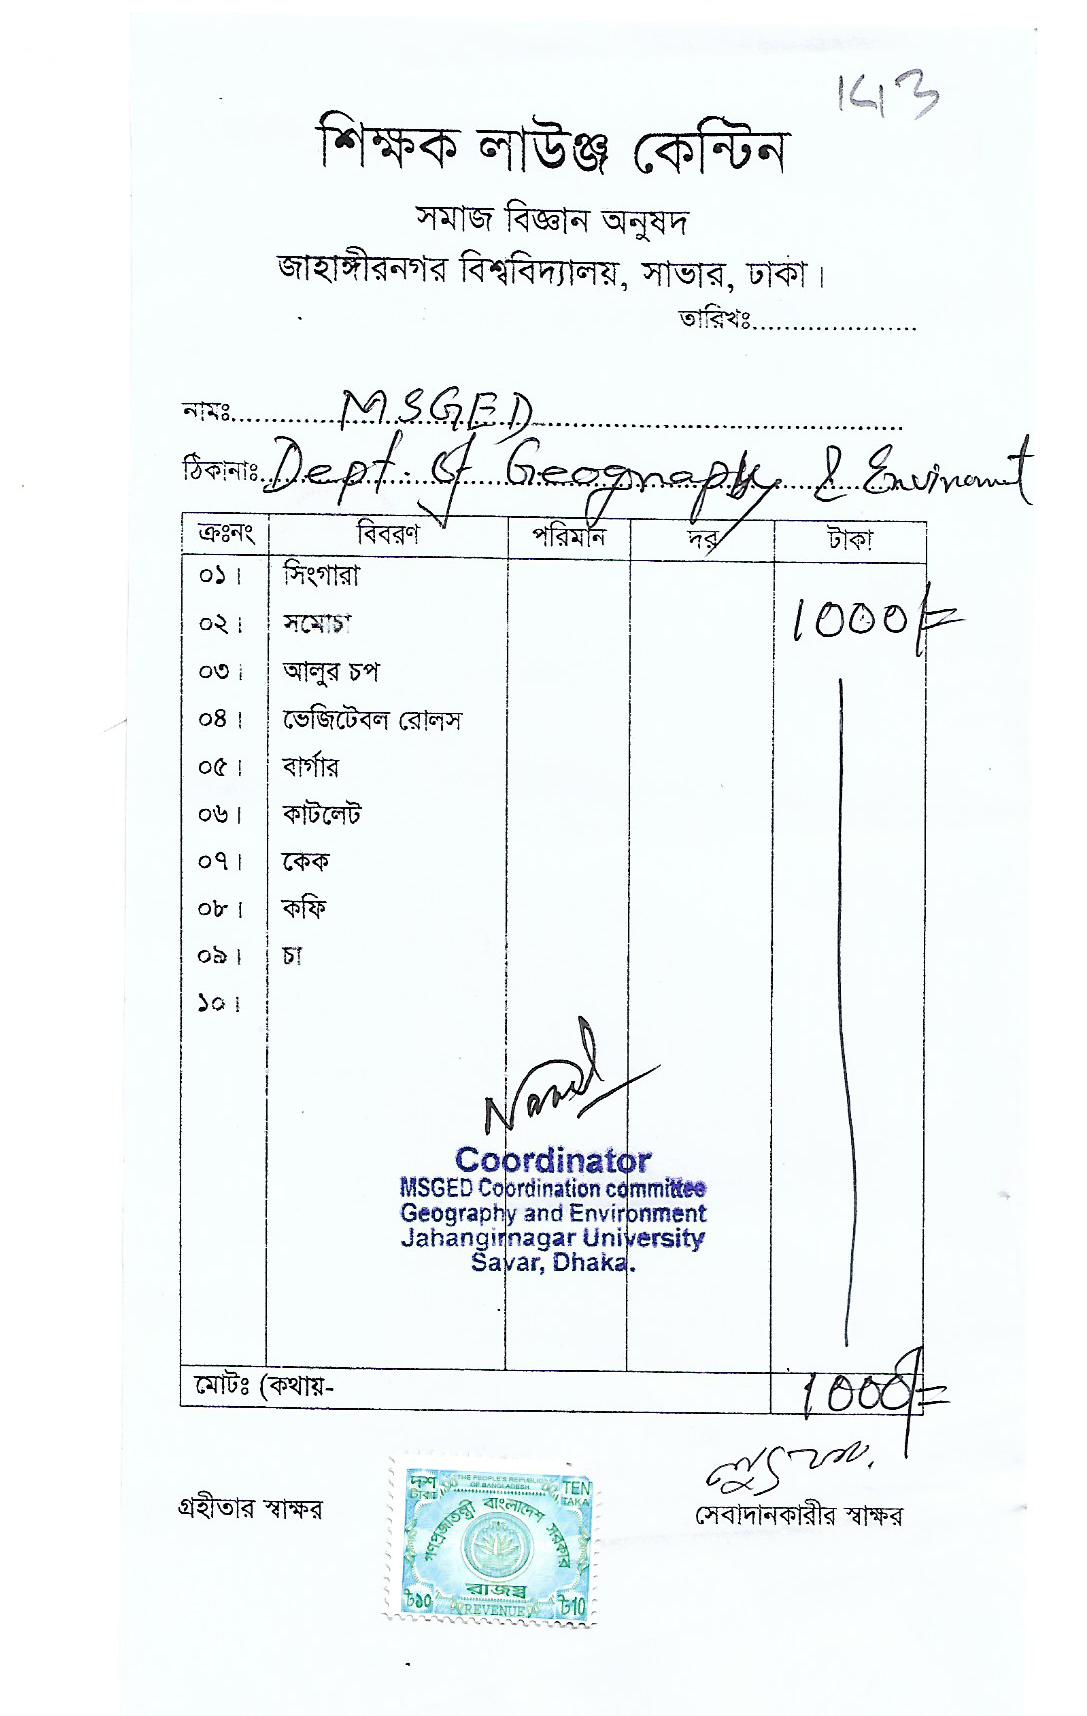 143
শিক্ষক লাউঞ্জ কেন্টিন
সমাজ বিজ্ঞান অনুষদ
জাহাঙ্গীরনগর বিশ্ববিদ্যালয়, সাভার, ঢাকা।
তারিখঃ......................
নামঃ......MSGED......
ঠিকানাঃ Dept. of Geography & Envirnomnt
ক্রঃনং বিবরণ পরিমান দর টাকা
০১। সিংগারা
০২। সমোচা 1000/=
০৩। আলুর চপ
০৪। ভেজিটেবল রোলস
০৫। বার্গার
০৬। কাটলেট
০৭। কেক
০৮। কফি
০৯। চা
১০।
Coordinator
MSGED Coordination committee
Geography and Environment
Jahangirnagar University
Savar, Dhaka.
মোটঃ (কথায়- 1000/=
গ্রহীতার স্বাক্ষর
সেবাদানকারীর স্বাক্ষর
দশ টাকা THE PEOPLE'S REPUBLIC OF BANGLADESH TEN TAKA
গণপ্রজাতন্ত্রী বাংলাদেশ সরকার
রাজস্ব
৳১০ REVENUE ৳10